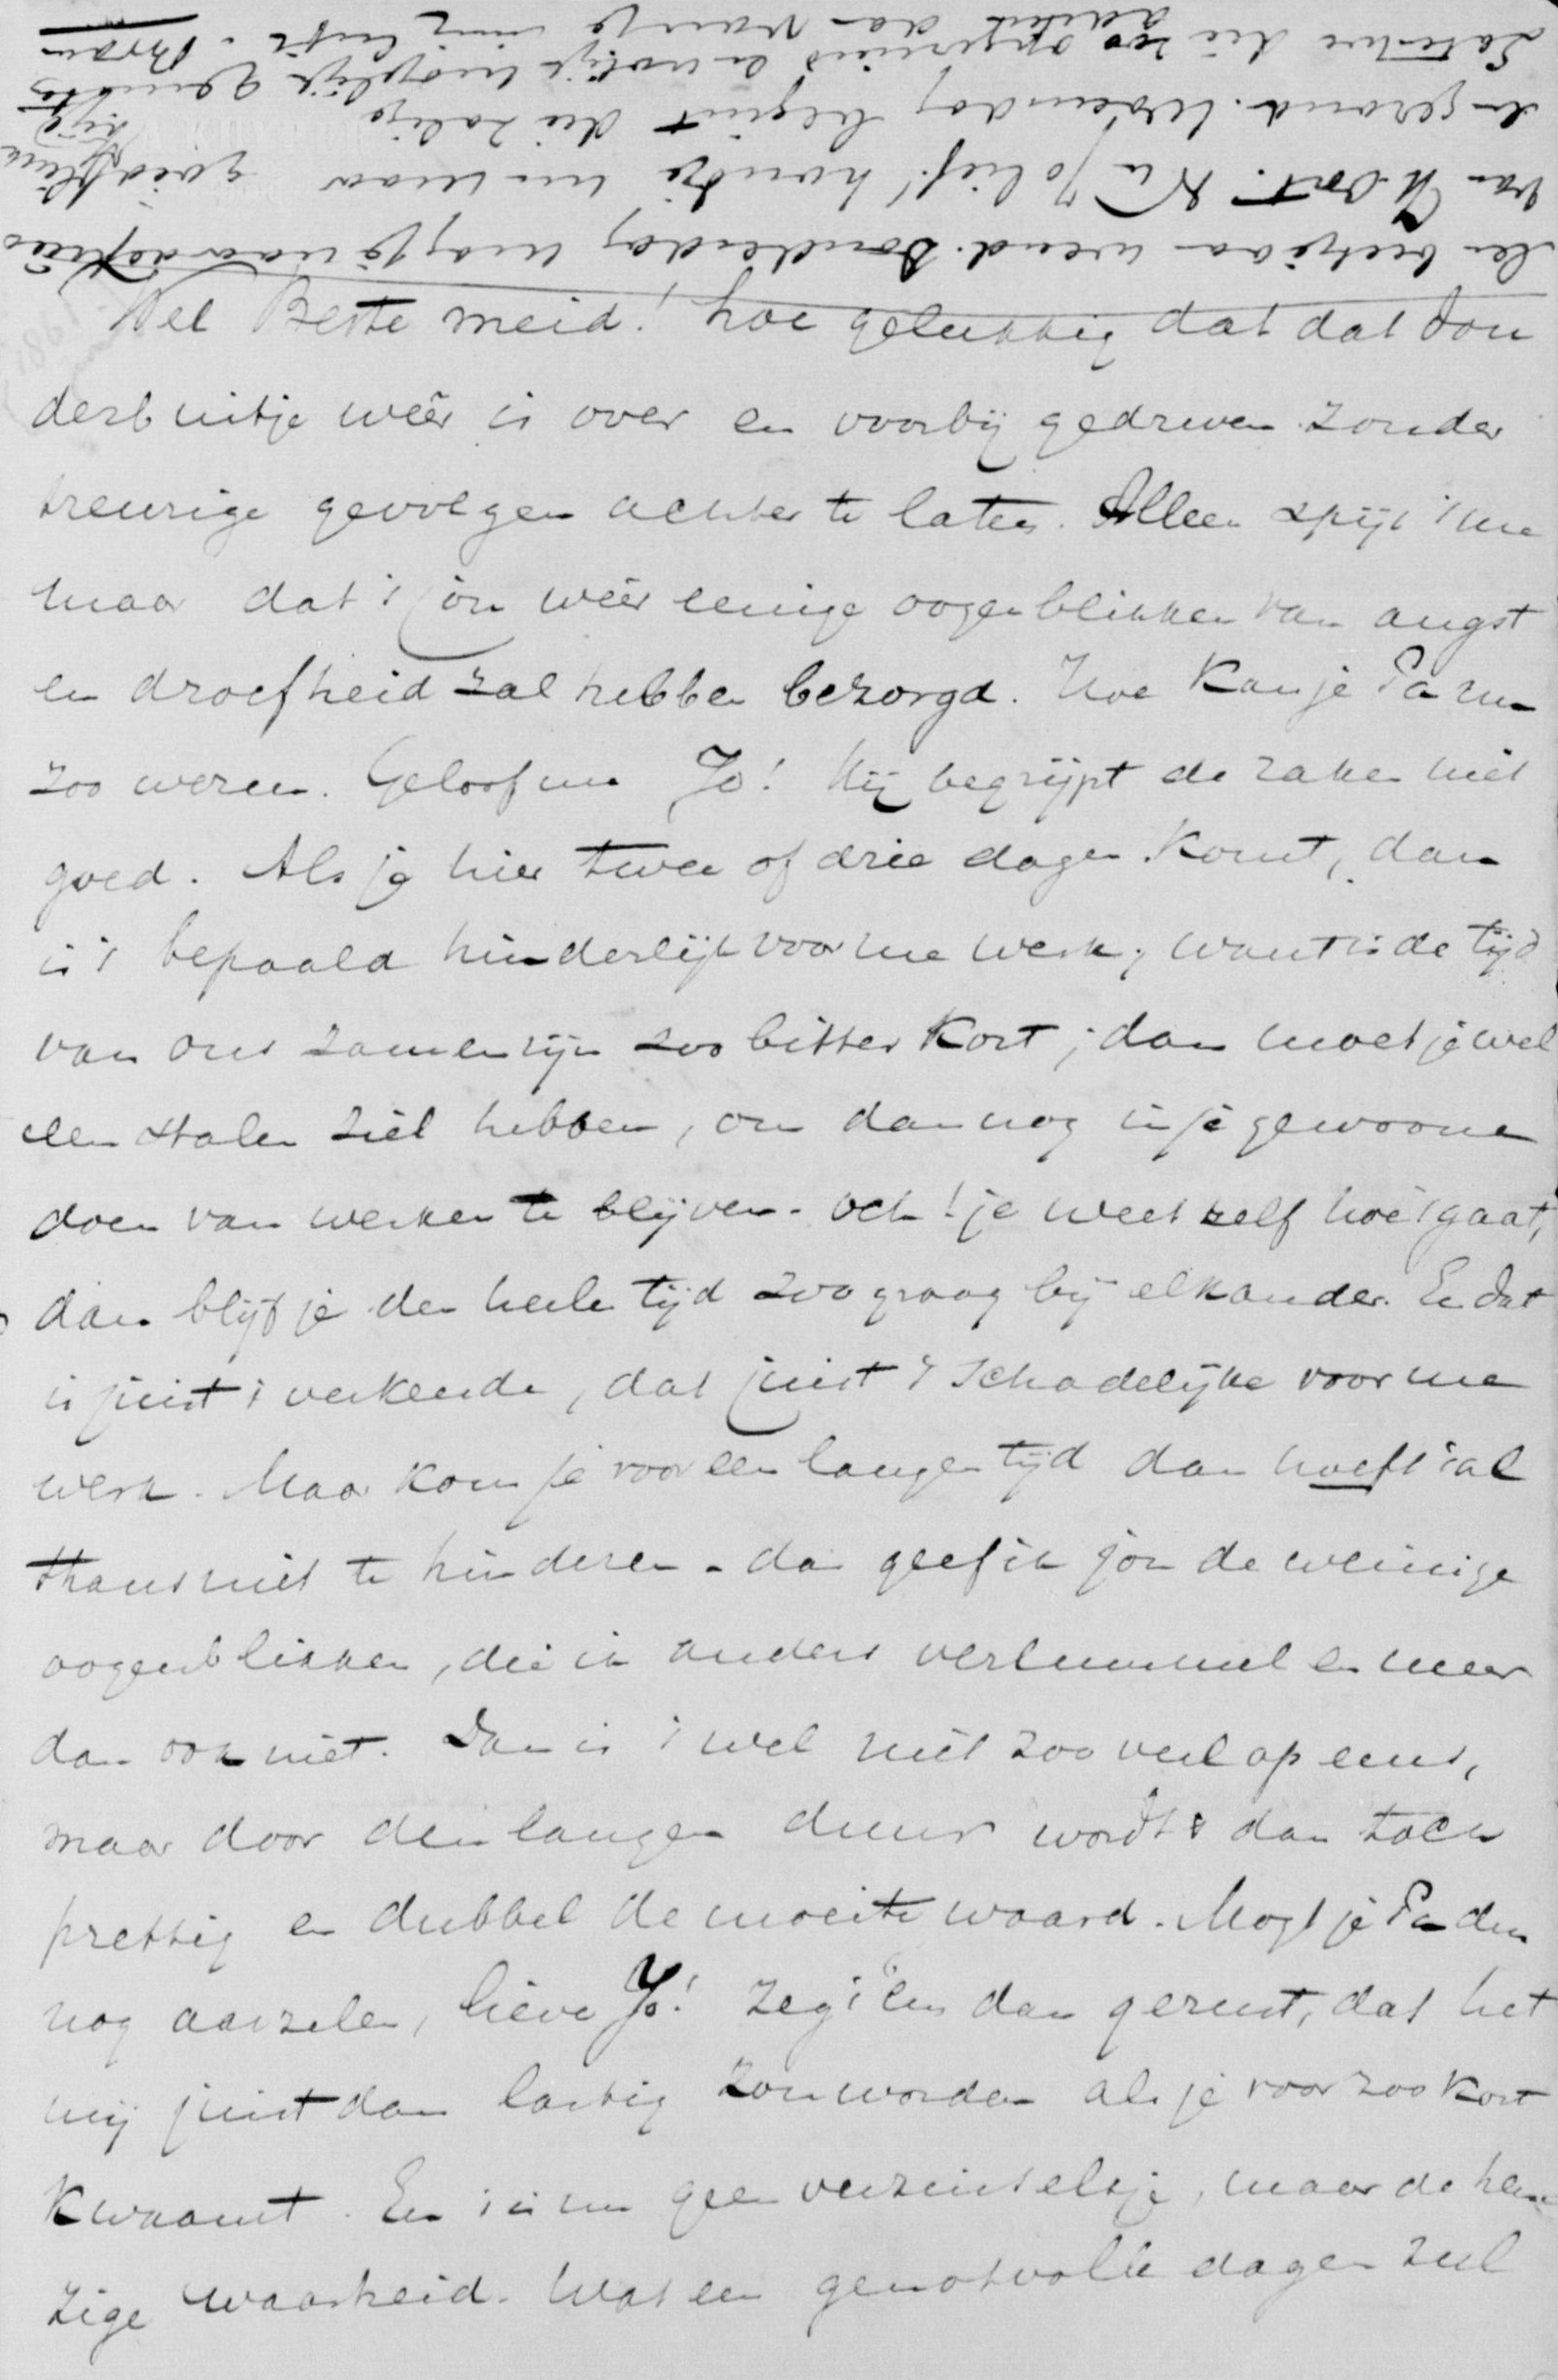 Wel Beste meid! hoe gelukkig dat dat don
derbuitje weêr is over en voorbij gedreven zonder
treurige gevolgen achter te laten. Alleen spijt 't me
maar dat 't jou weêr eenige oogenblikken van angst
en droefheid zal hebben bezorgd. Hoe kan je Pa nu
zoo wezen. Geloof me Jo! Hij begrijpt de zaken niet
goed. Als je hier twee of drie dagen komt, dan
is 't bepaald hinderlijk voor me werk, want is de tijd
van ons zamenzijn zoo bitter kort, dan moet je wel
een stalen ziel hebben, om dan nog in je gewoone
doen van werken te blijven. och! je weet zelf hoe 't gaat,
dan blijf je den heelen tijd zoo graag bij elkander. En dat
is juist 't verkeerde, dat juist 't schadelijke voor me
werk. Maar kom je voor een langen tijd dan hoeft 't al
thans niet te hinderen. dan geef ik jou de weinige
oogenblikken, die ik anders verlummel en meer
dan ook niet. Dan is 't wel niet zoo veel op eens,
maar door den langen duur wordt 't dan toch
prettig en dubbel de moeite waard. Mogt je Pa dus
nog aarzelen, lieve Jo! zeg 't em dan gerust, dat het
mij juist dan lastig zou worden als je voor zoo kort
kwaamt. En 't is nu geen verzinseltje, maar de
zige waarheid. Wat een genotvolle dagen zul
een beetje aan wend. Donderdag mag je naar
van H. Oort. Nu Jo lief! houdje nu maar goed
en gezond. Woensdag begint die zalige